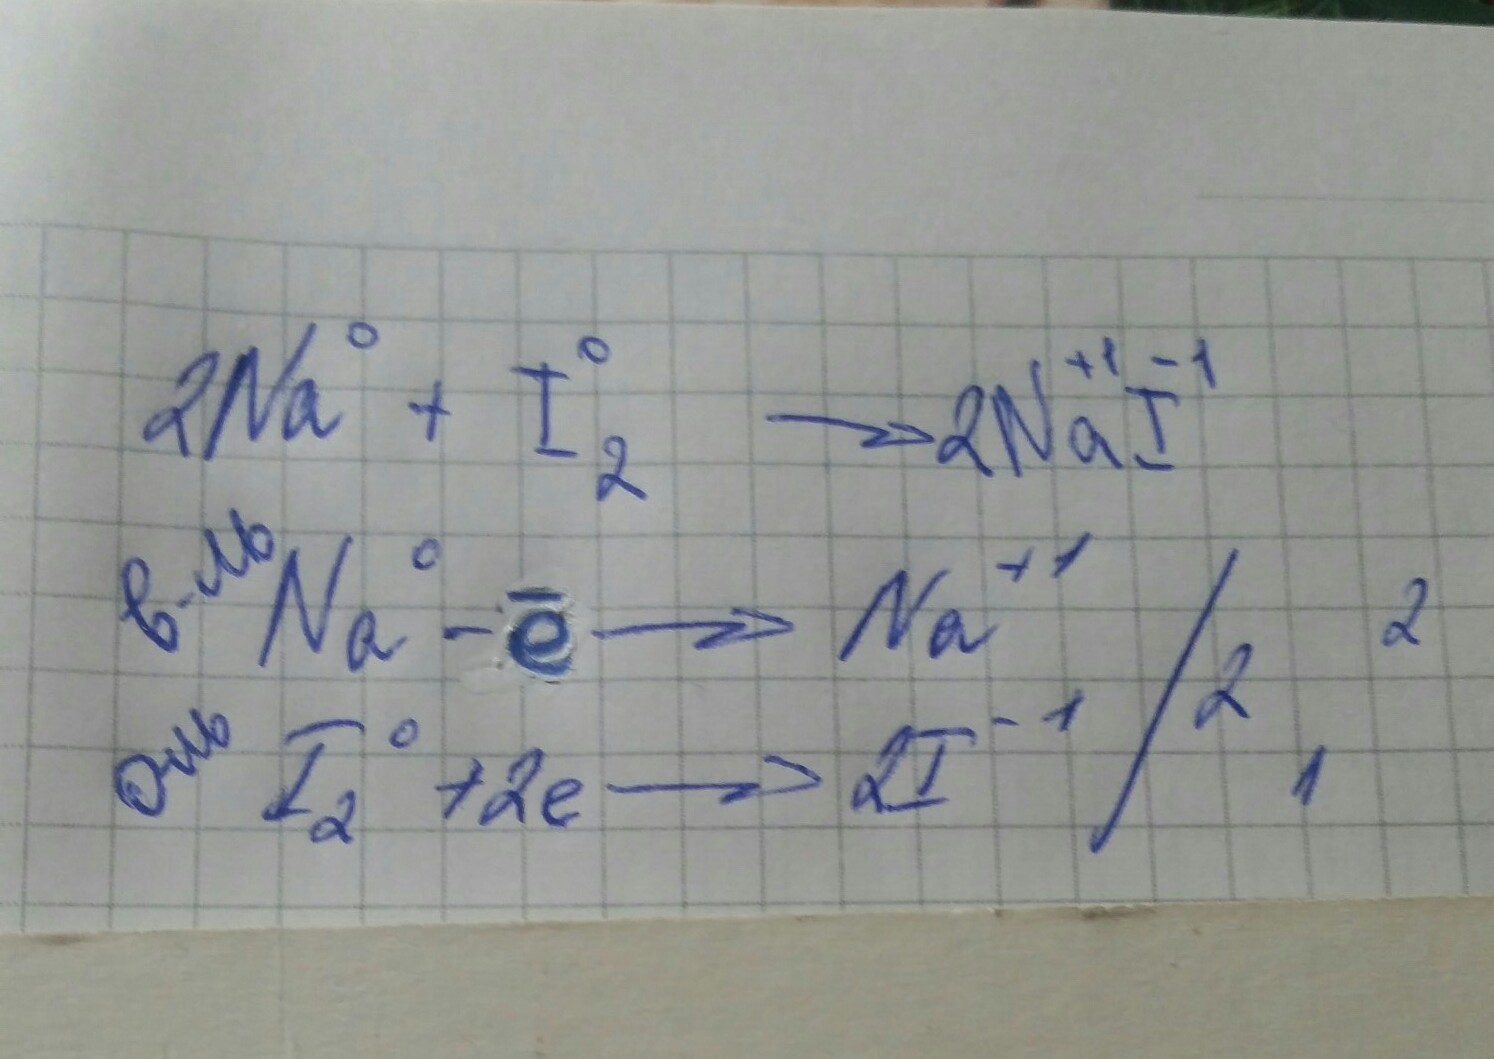 2Na⁰ + I₂⁰ → 2Na⁺¹I⁻¹
в-ль Na⁰ - ē → Na⁺¹ / 2 2
о-ль I₂⁰ + 2e → 2I⁻¹ 1